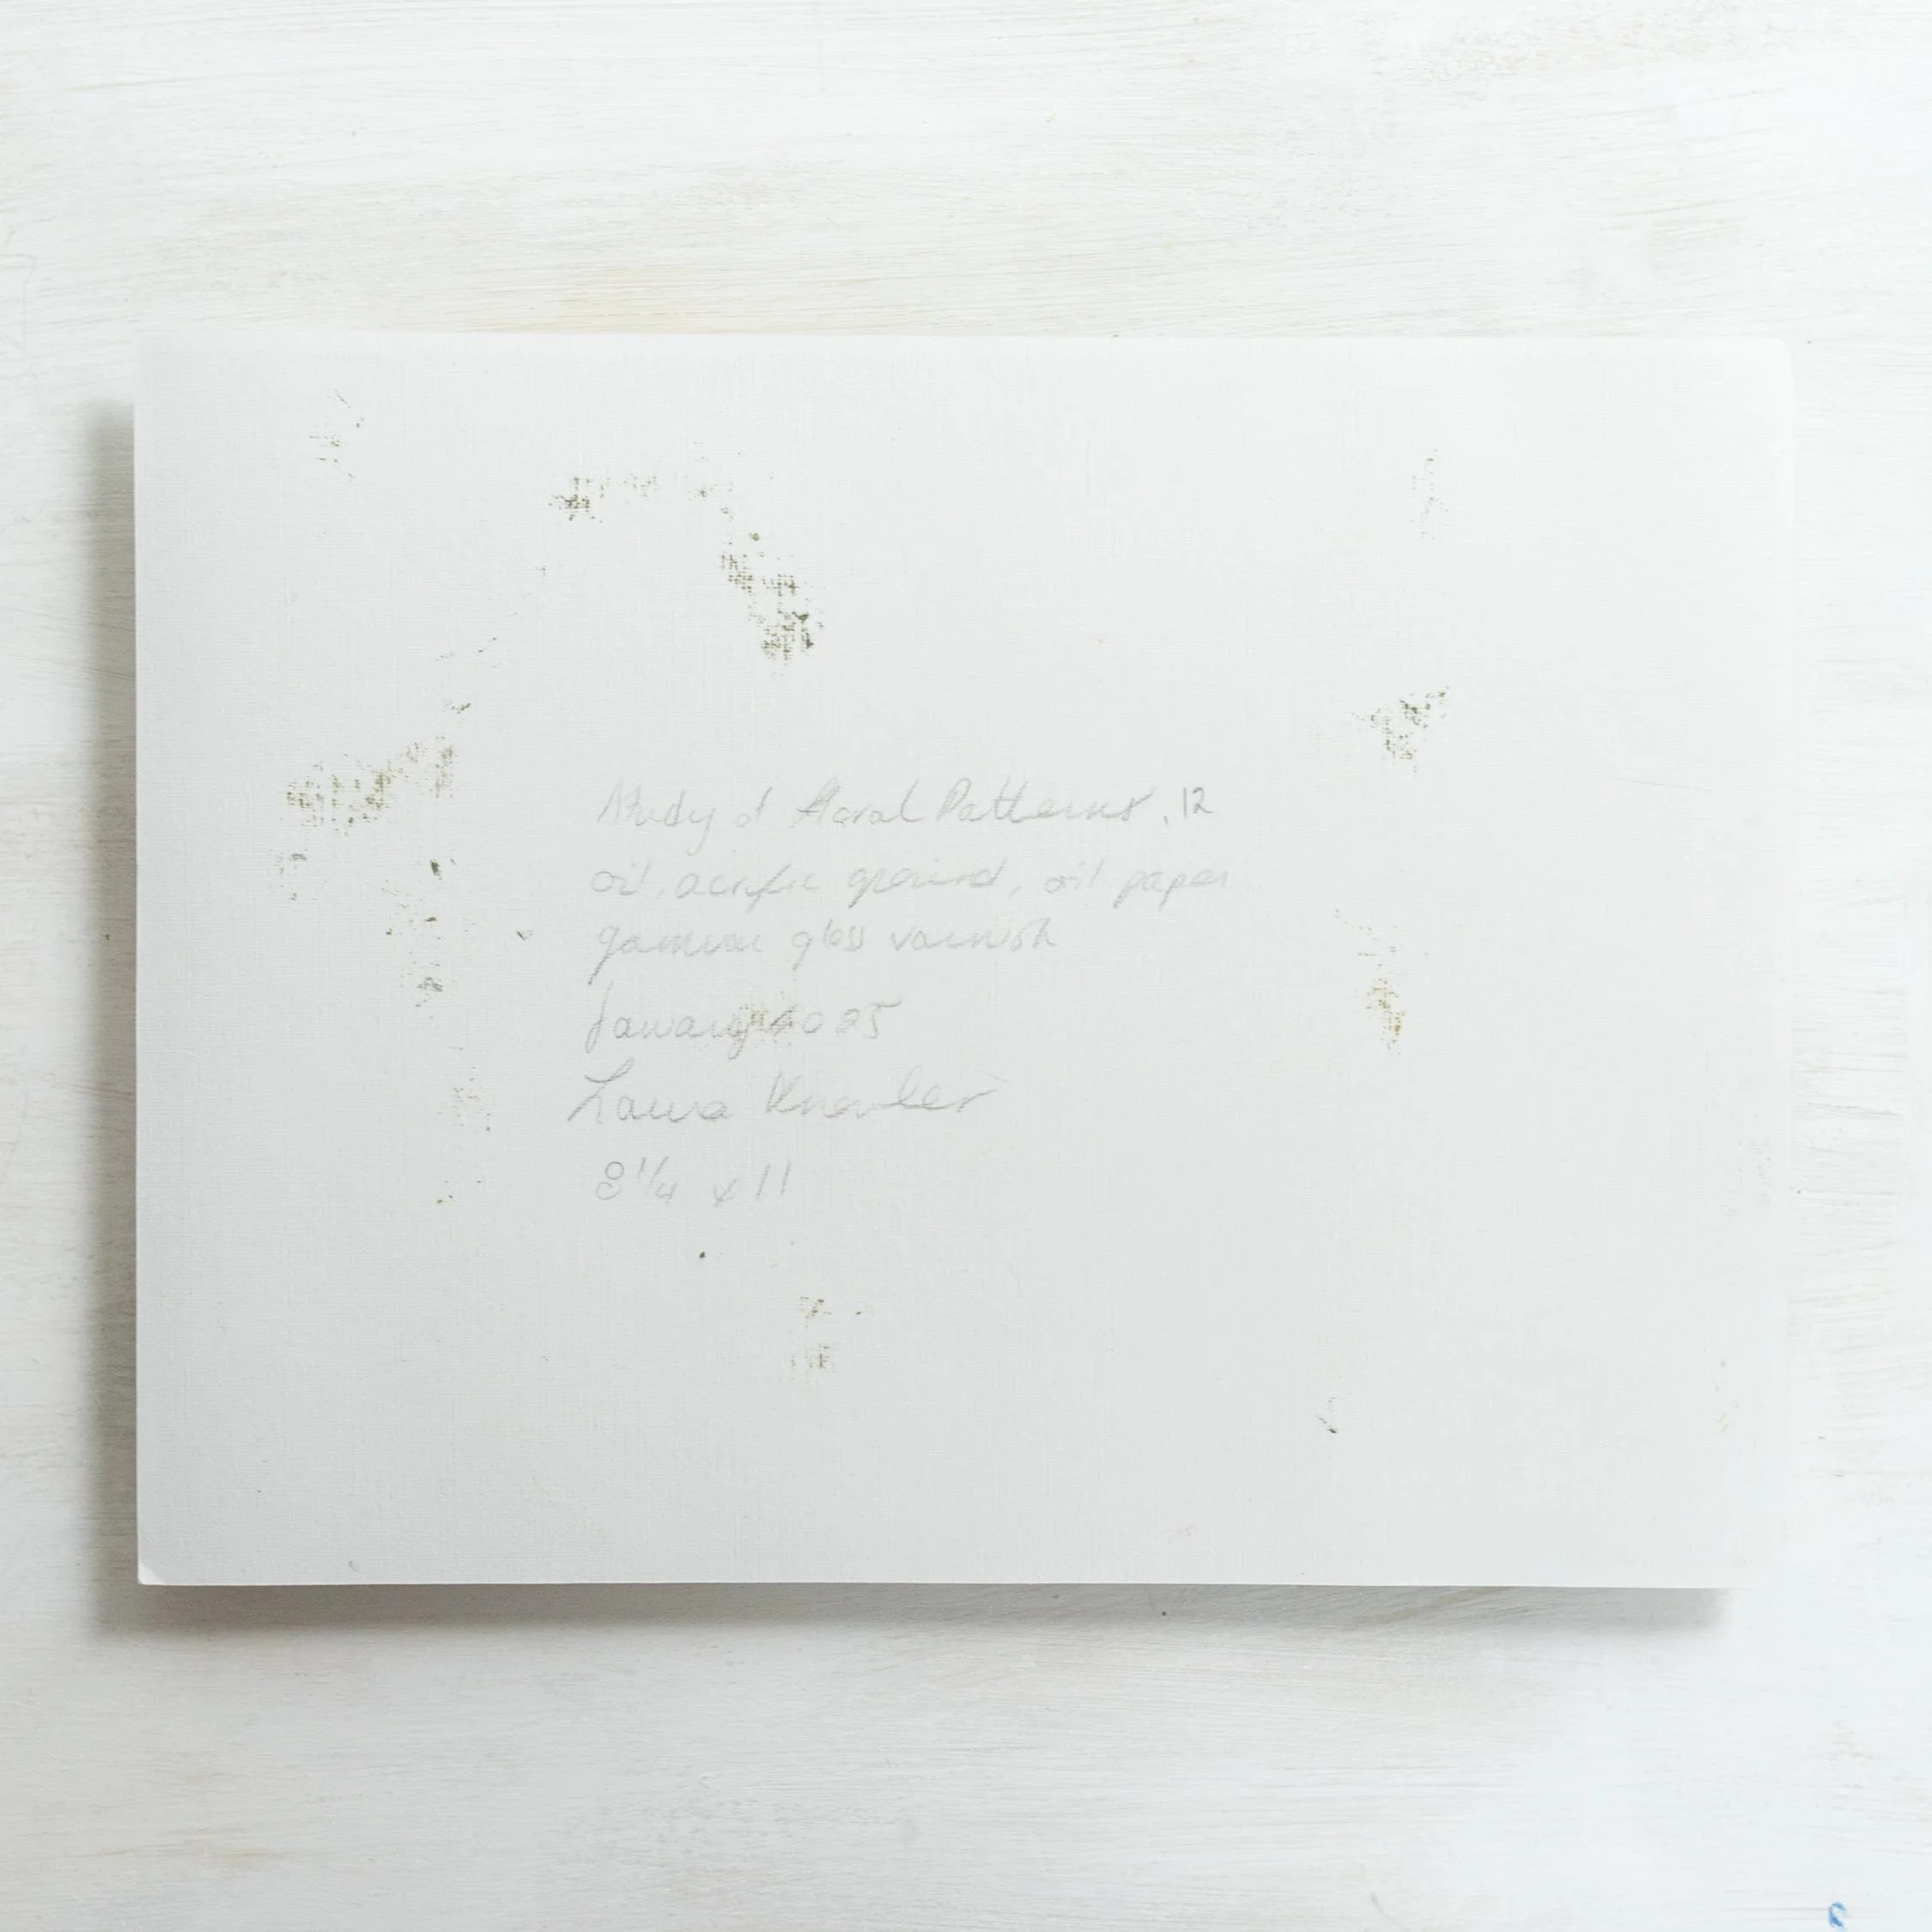 Study of Floral Patterns, 12
oil, acrylic ground, oil paper
gamvar gloss varnish
January 2025
Laura
8 1/4 x 11